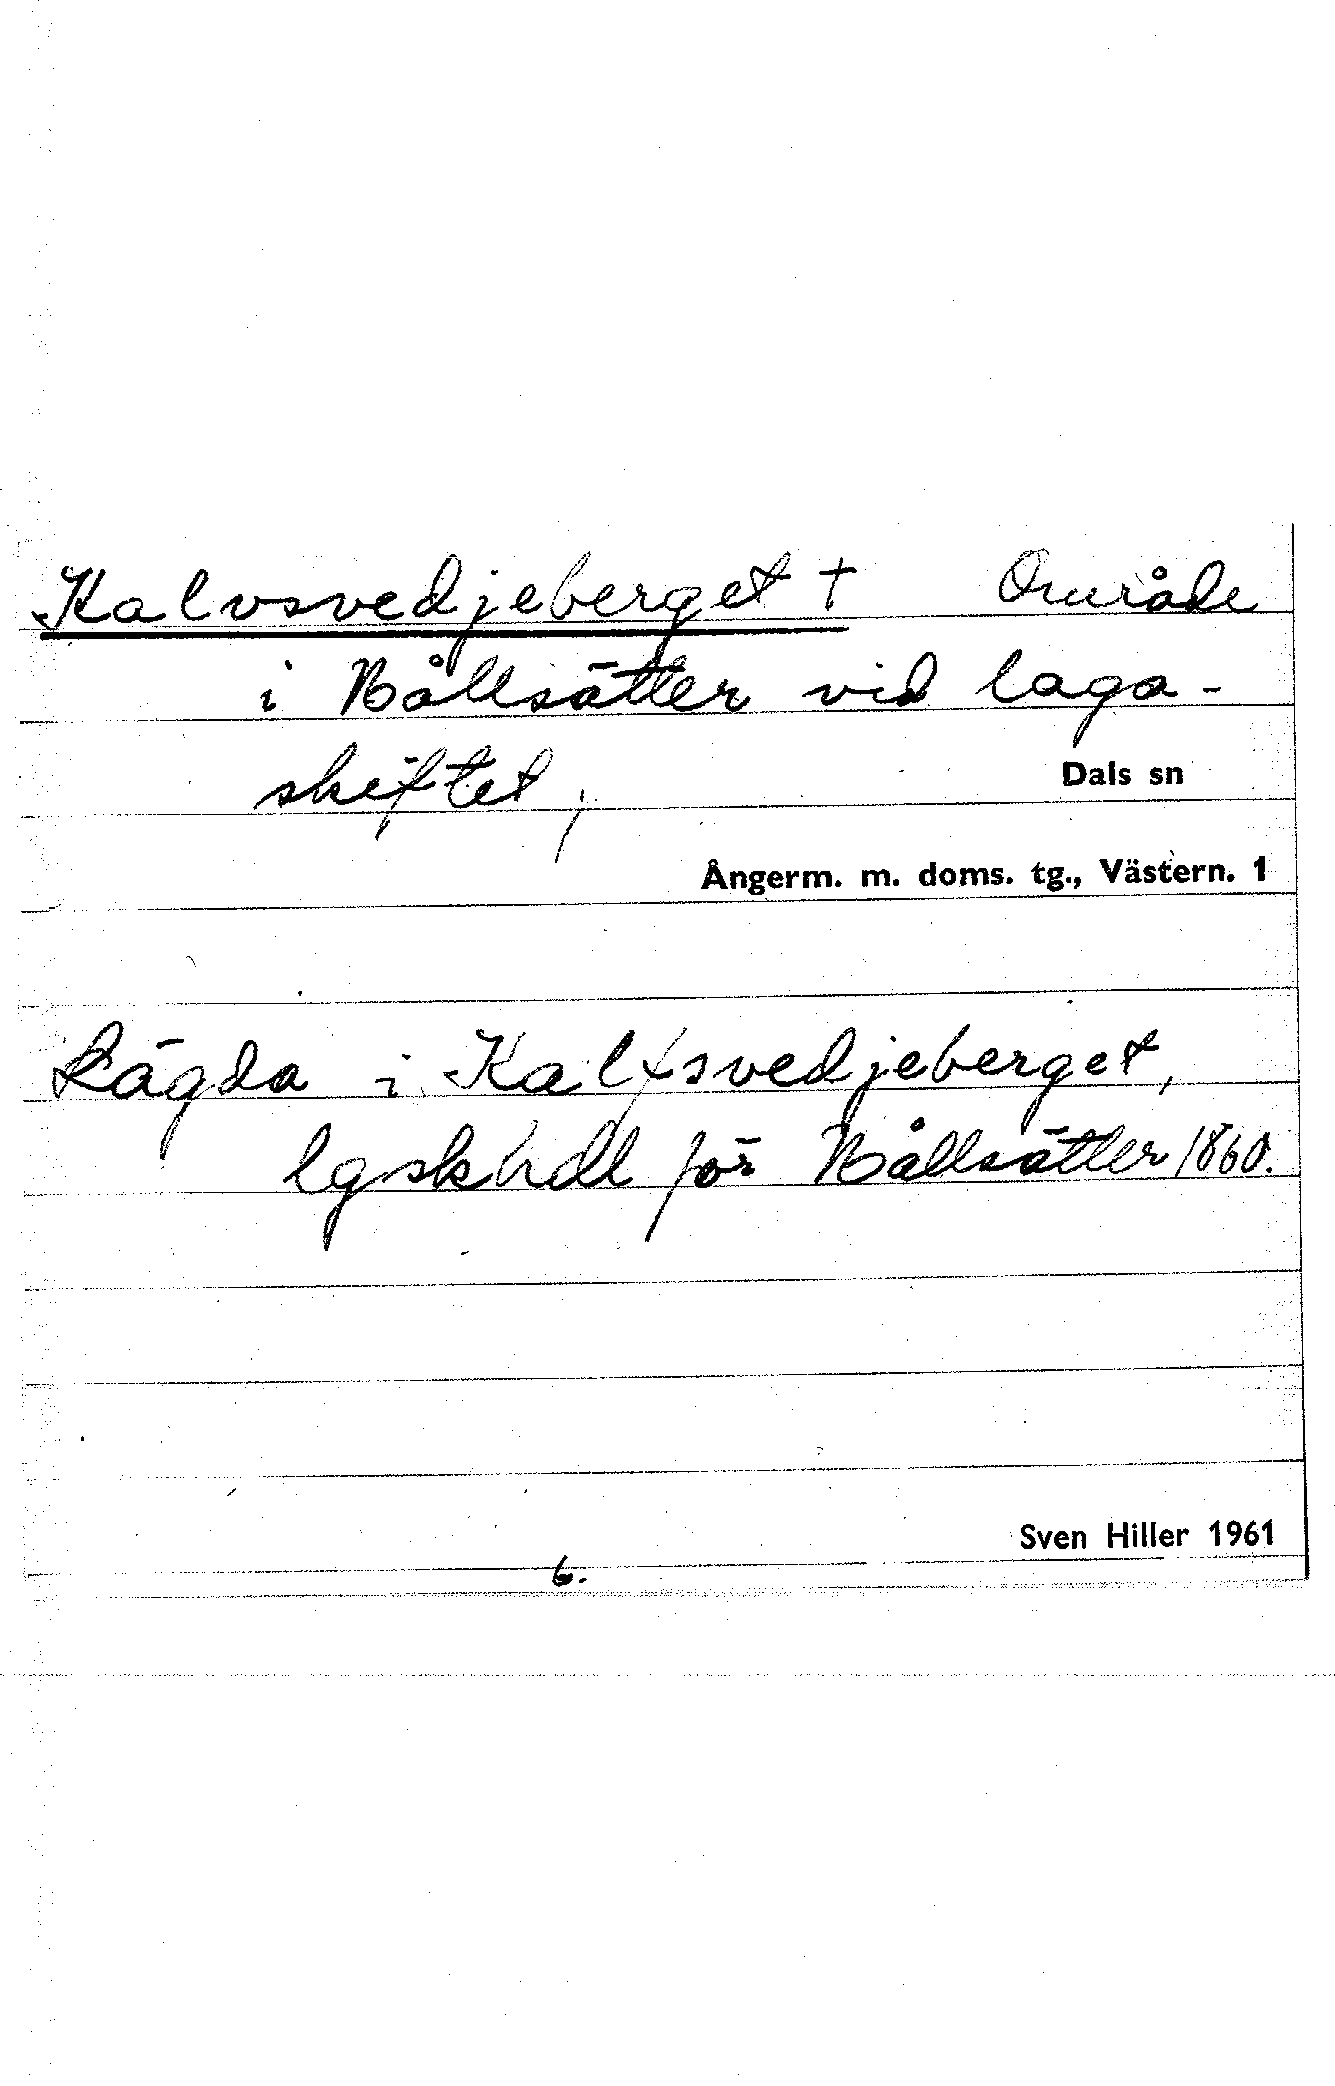 Kalvsvedjeberget + Område
i Bållsätter vid laga-
skiftet,
Dals sn
Ångerm. m. doms. tg., Västern. 1
Lägda i Kalfsvedjeberget,
lgskhdl för Bållsätter 1860.
Sven Hiller 1961
6.